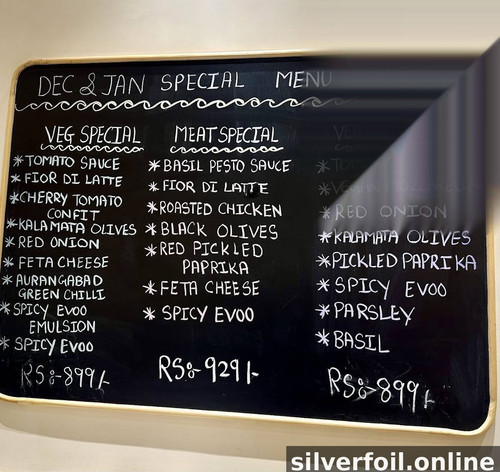 DEC & JAN SPECIAL MENU
VEG SPECIAL
* TOMATO SAUCE
* FIOR DI LATTE
* CHERRY TOMATO
CONFIT
* KALAMATA OLIVES
* RED ONION
* FETA CHEESE
* AURANGABAD
GREEN CHILLI
* SPICY EVOO
EMULSION
* SPICY EVOO
RS:-899/-
MEAT SPECIAL
* BASIL PESTO SAUCE
* FIOR DI LATTE
* ROASTED CHICKEN
* BLACK OLIVES
* RED PICKLED
PAPRIKA
* FETA CHEESE
* SPICY EVOO
RS:-929/-
* RED ONION
* KALAMATA OLIVES
* PICKLED PAPRIKA
* SPICY EVOO
* PARSLEY
* BASIL
RS:-899/-
silverfoil.online